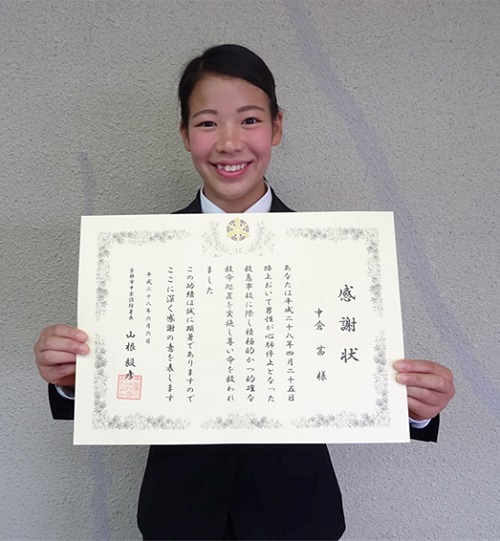 感謝状
中倉 茜 様
あなたは平成二十八年四月二十五日
路上において男性が心肺停止となった
救急事故に際し積極的かつ的確な
救命処置を実施し尊い命を救われ
ました
この功績は誠に顕著でありますので
ここに深く感謝の意を表します
平成二十八年六月六日
京都市中京消防署長
山根 毅彦